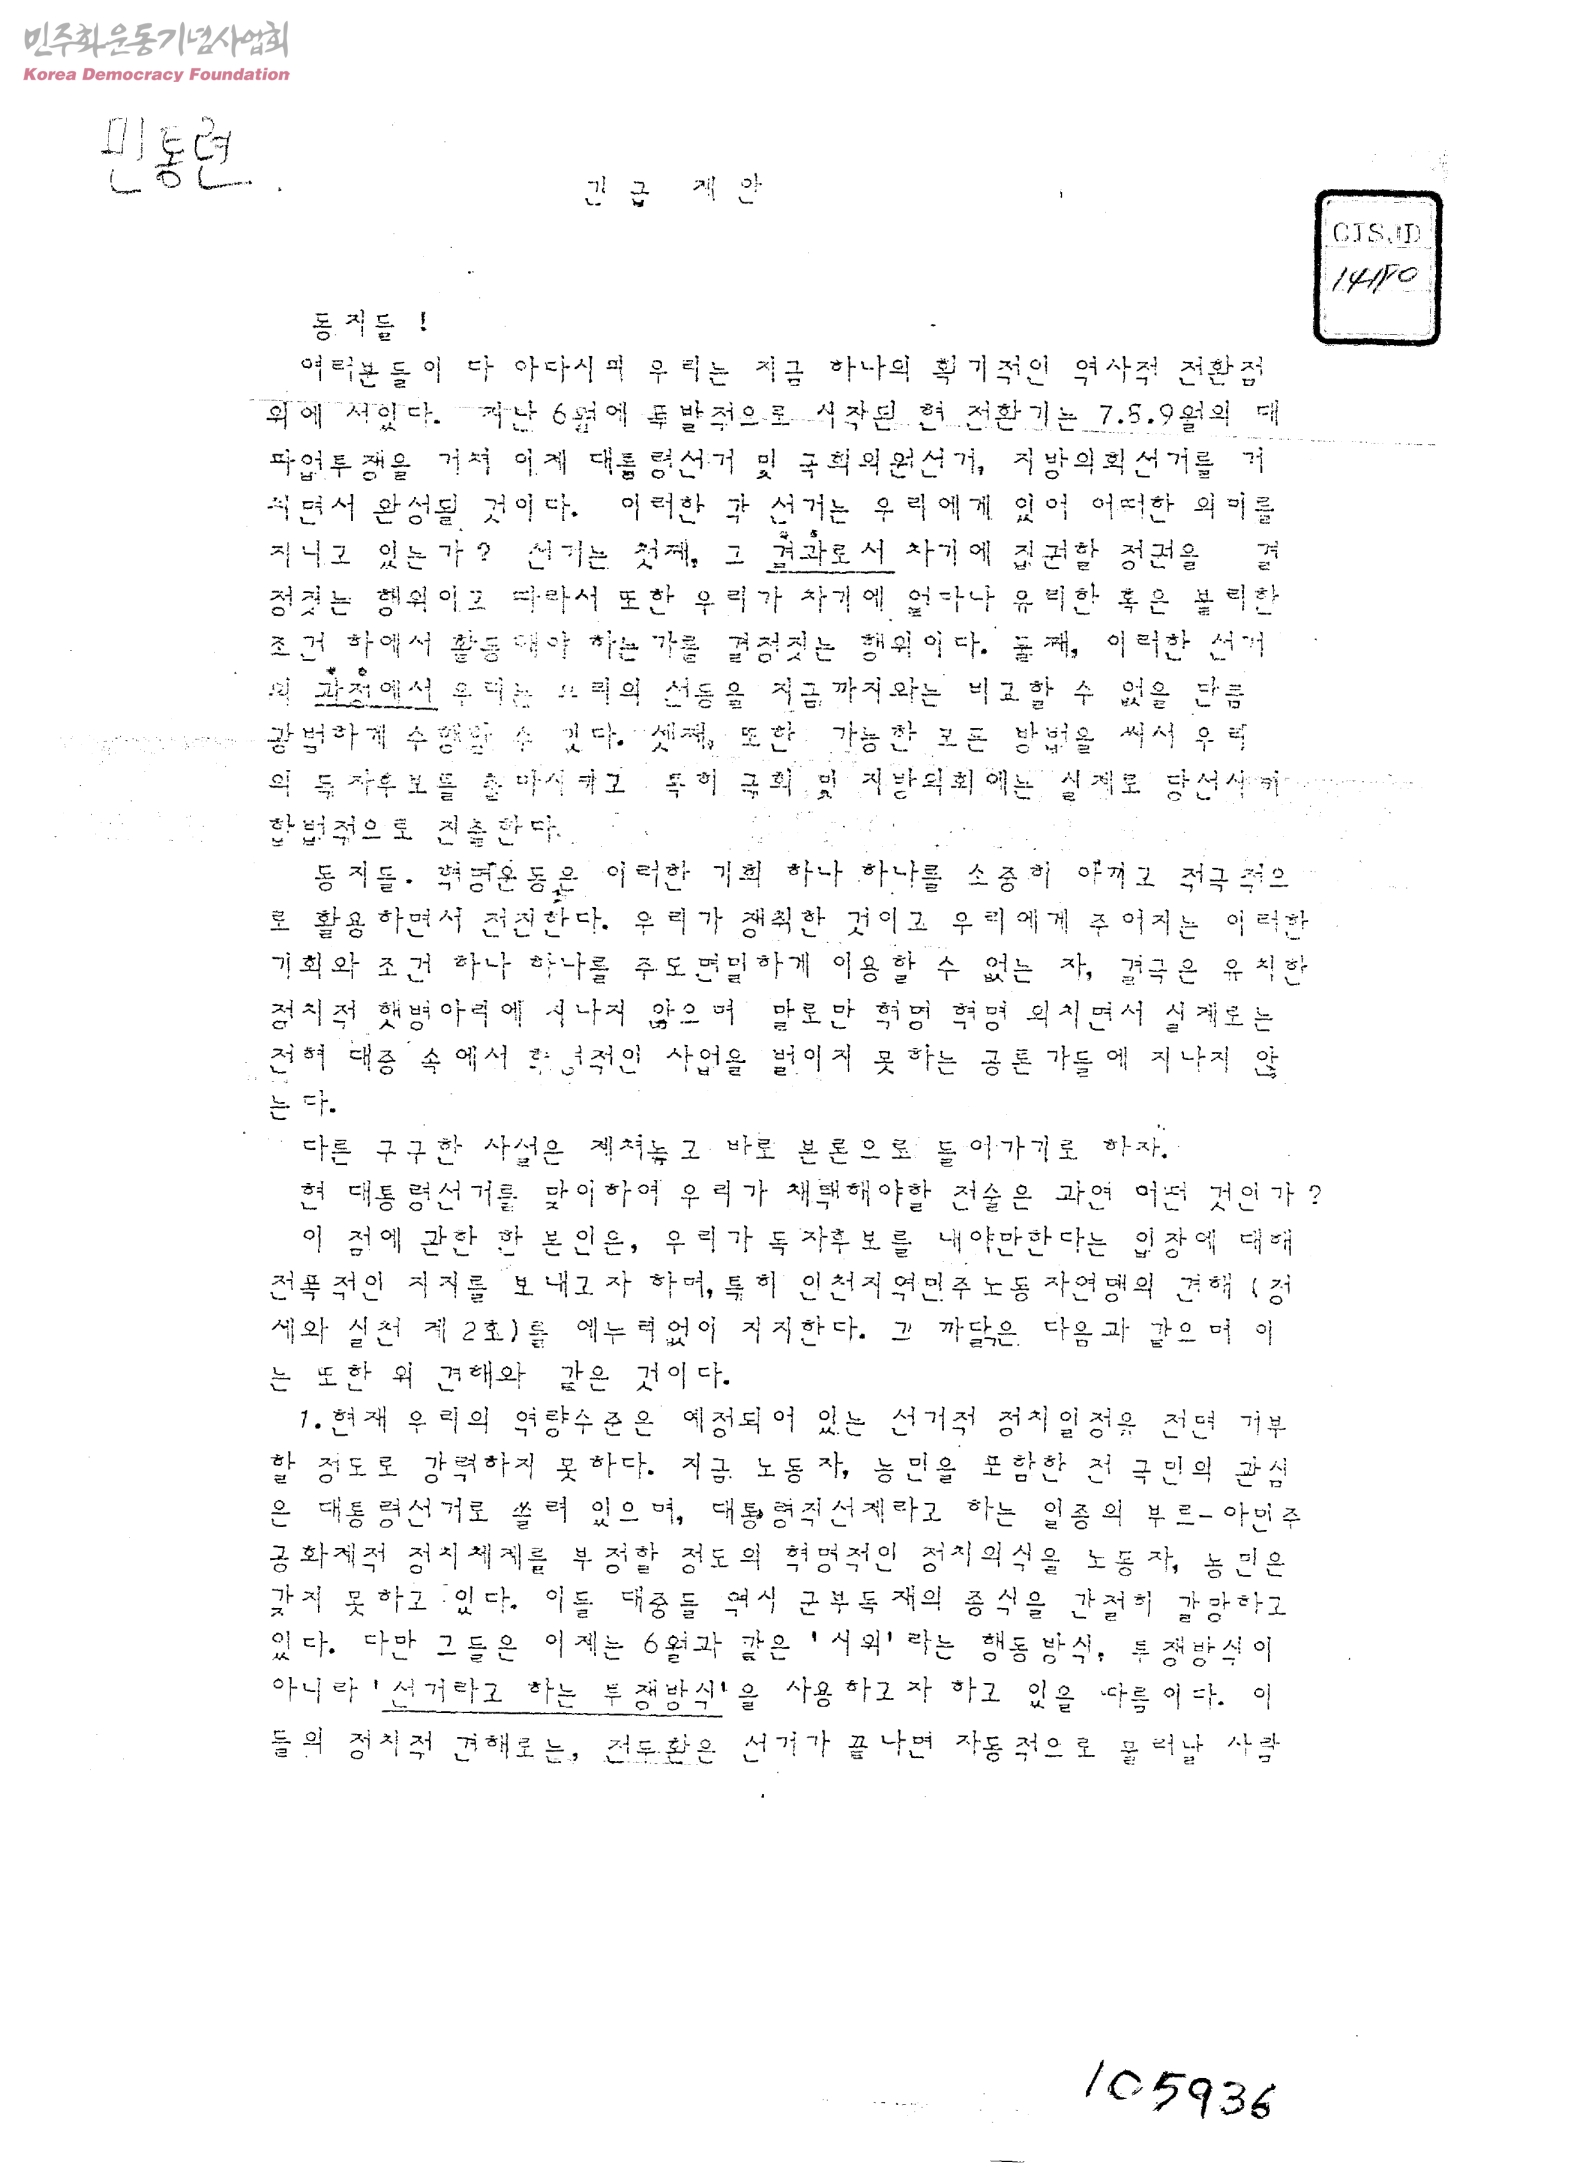 민주화운동기념사업회
Korea Democracy Foundation
민통련
긴급 제안
CISJD
동지들 !
여러분들이 다 아다시피 우리는 지금 하나의 획기적인 역사적 전환점
위에 서있다. 지난 6월에 폭발적으로 시작된 현 전환기는 7.8.9월의 대
파업투쟁을 거쳐 이제 대통령선거 및 국회의원선거, 지방의회선거를 거
치면서 완성될 것이다. 이러한 각 선거는 우리에게 있어 어떠한 의미를
지니고 있는가? 선거는 첫째, 그 결과로서 차기에 집권할 정권을 결
정짓는 행위이고 따라서 또한 우리가 차기에 얼마나 유리한 혹은 불리한
조건 하에서 활동해야 하는가를 결정짓는 행위이다. 둘째, 이러한 선거
의 과정에서 우리는 우리의 선동을 지금까지와는 비교할 수 없을 만큼
광범하게 수행할 수 있다. 셋째, 또한 가능한 모든 방법을 써서 우리
의 독자후보를 출마시키고 특히 국회 및 지방의회에는 실제로 당선시켜
합법적으로 진출한다.
동지들. 혁명운동은 이러한 기회 하나 하나를 소중히 아끼고 적극적으
로 활용하면서 전진한다. 우리가 쟁취한 것이고 우리에게 주어지는 이러한
기회와 조건 하나 하나를 주도면밀하게 이용할 수 없는 자, 결국은 유치한
정치적 햇병아리에 지나지 않으며 말로만 혁명 혁명 외치면서 실제로는
전혀 대중 속에서 혁명적인 사업을 벌이지 못하는 공론가들에 지나지 않
는다.
다른 구구한 사설은 제쳐놓고 바로 본론으로 들어가기로 하자.
현 대통령선거를 맞이하여 우리가 채택해야할 전술은 과연 어떤 것인가?
이 점에 관한 한 본인은, 우리가 독자후보를 내야만한다는 입장에 대해
전폭적인 지지를 보내고자 하며, 특히 인천지역민주노동자연맹의 견해 (정
세와 실천 제2호)를 에누리없이 지지한다. 그 까닭은 다음과 같으며 이
는 또한 위 견해와 같은 것이다.
1. 현재 우리의 역량수준은 예정되어 있는 선거적 정치일정을 전면 거부
할 정도로 강력하지 못하다. 지금 노동자, 농민을 포함한 전 국민의 관심
은 대통령선거로 쏠려 있으며, 대통령직선제라고 하는 일종의 부르-아민주
공화제적 정치체제를 부정할 정도의 혁명적인 정치의식을 노동자, 농민은
갖지 못하고 있다. 이들 대중들 역시 군부독재의 종식을 간절히 갈망하고
있다. 다만 그들은 이제는 6월과 같은 '시위'라는 행동방식, 투쟁방식이
아니라 '선거라고 하는 투쟁방식'을 사용하고자 하고 있을 따름이다. 이
들의 정치적 견해로는, 전두환은 선거가 끝나면 자동적으로 물러날 사람
105936